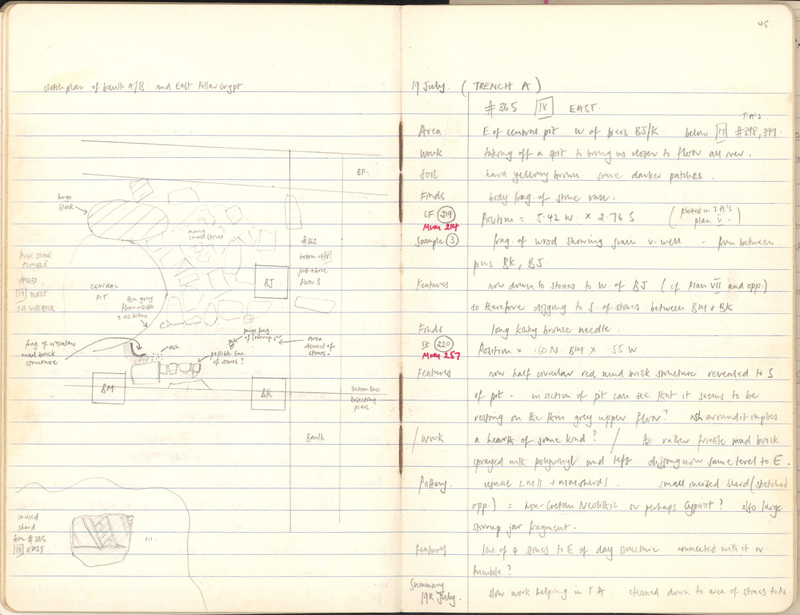 sketch plan of baulk A/B and East Pillar Crypt
BP
huge
block
many
small stones
#362
below
just above
floor
BJ
HUGE STONE
TUMBLE
17 WEST
CENTRAL
PIT
thin grey
floor visible
3.20 below
Frag of circular
mud brick
structure
ash
large frag
of stirrup jar
possible line
of stones?
Area
devoid of
stones
BM
BK
section line
bisecting
piers
Baulk
incised
sherd
from #365
18 EAST
45
19 July. (TRENCH A)
#365 18 EAST.
Area E of central pit W of piers BJ/K below 17 #398, 399
Work taking off a spit to bring us closer to floor all over.
Soil hard yellowy brown some darker patches.
Finds body frag of stone vase.
SF 219 Position = 5.42 W × 2.76 S (plotted in J.A's plan V.)
Mus 214
Sample 3 frag. of wood showing grain v. well - from between
piers BK, BJ.
Features now down to stones to W. of BJ (cf Plan VII and opp.)
so therefore digging to S. of stones between BM & BK
Finds long kinky bronze needle.
SF 220 Position = .60 N. BM × .55 W
Mus 257
Features now half circular red mud brick structure revealed to S
of pit. in section of pit can see that it seems to be
resting on the thin grey upper floor? ash around it implies
/Work a hearth of some kind? / So rather friable mud brick
sprayed with polyvinyl and left digging now same level to E.
Pottery small incised sherd (sketched
opp.) = non-Cretan Neolithic or perhaps Cypriot? also large
stirrup jar fragment.
Features line of 4 stones to E of clay structure connected with it or
tumble?
Summary
19th July. slow work helping in T A. cleaned down to area of stones to N